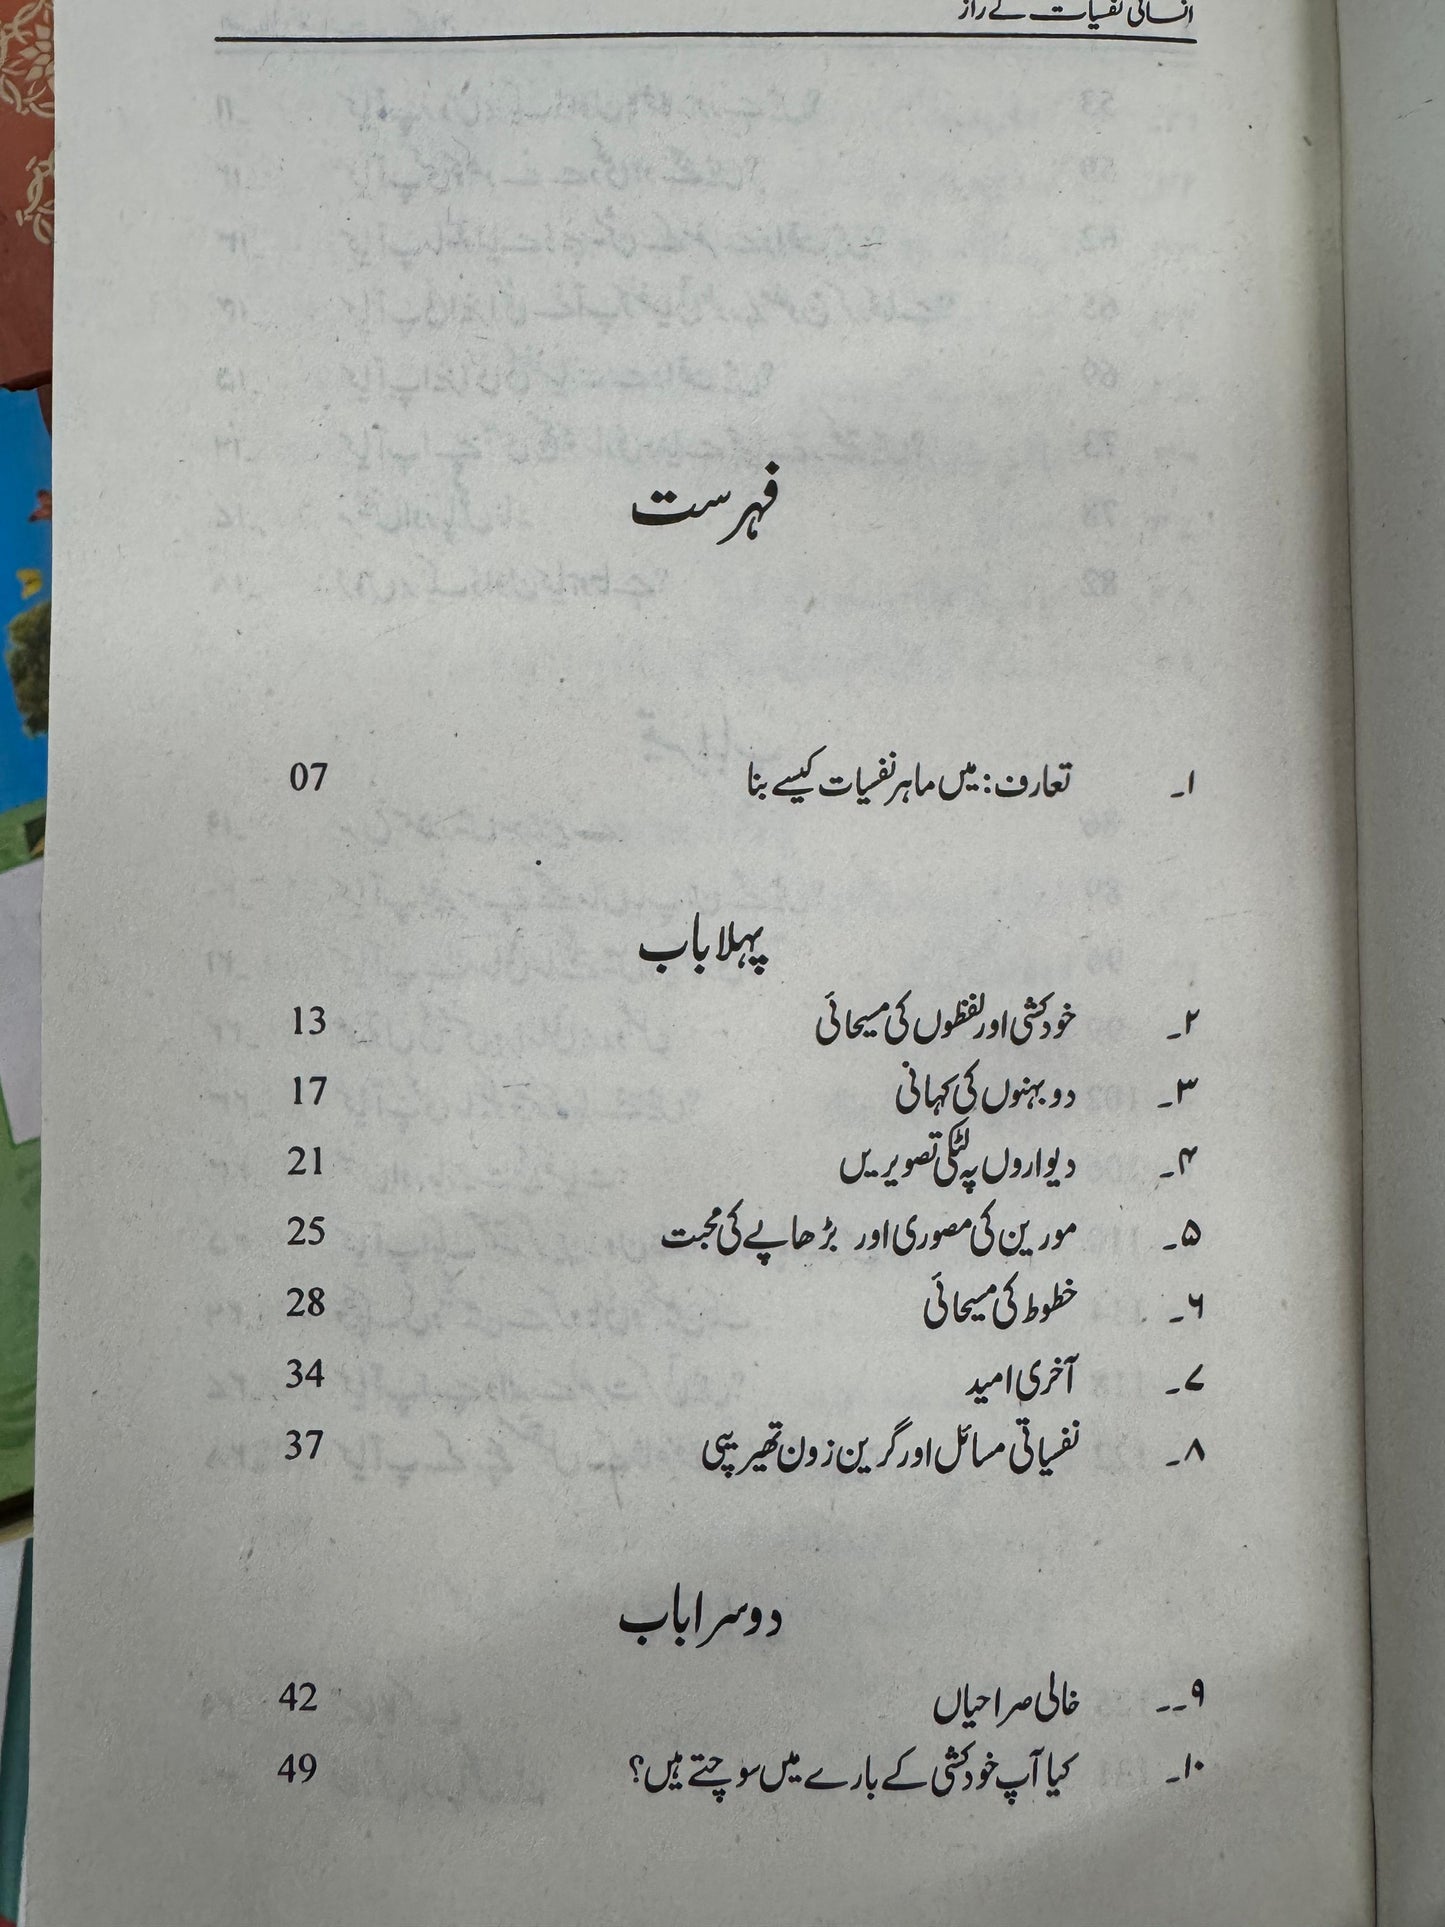 انسانی نفسیات کے راز
فہرست
۱۔ تعارف: میں ماہر نفسیات کیسے بنا 07
پہلا باب
۲۔ خودکشی اور لفظوں کی مسیحائی 13
۳۔ دو بہنوں کی کہانی 17
۴۔ دیواروں پہ لٹکی تصویریں 21
۵۔ مورین کی مصوری اور بڑھاپے کی محبت 25
۶۔ خطوط کی مسیحائی 28
۷۔ آخری امید 34
۸۔ نفسیاتی مسائل اور گرین زون تھیریپی 37
دوسرا باب
۹۔۔ خالی صراحیاں 42
۱۰۔ کیا آپ خودکشی کے بارے میں سوچتے ہیں؟ 49